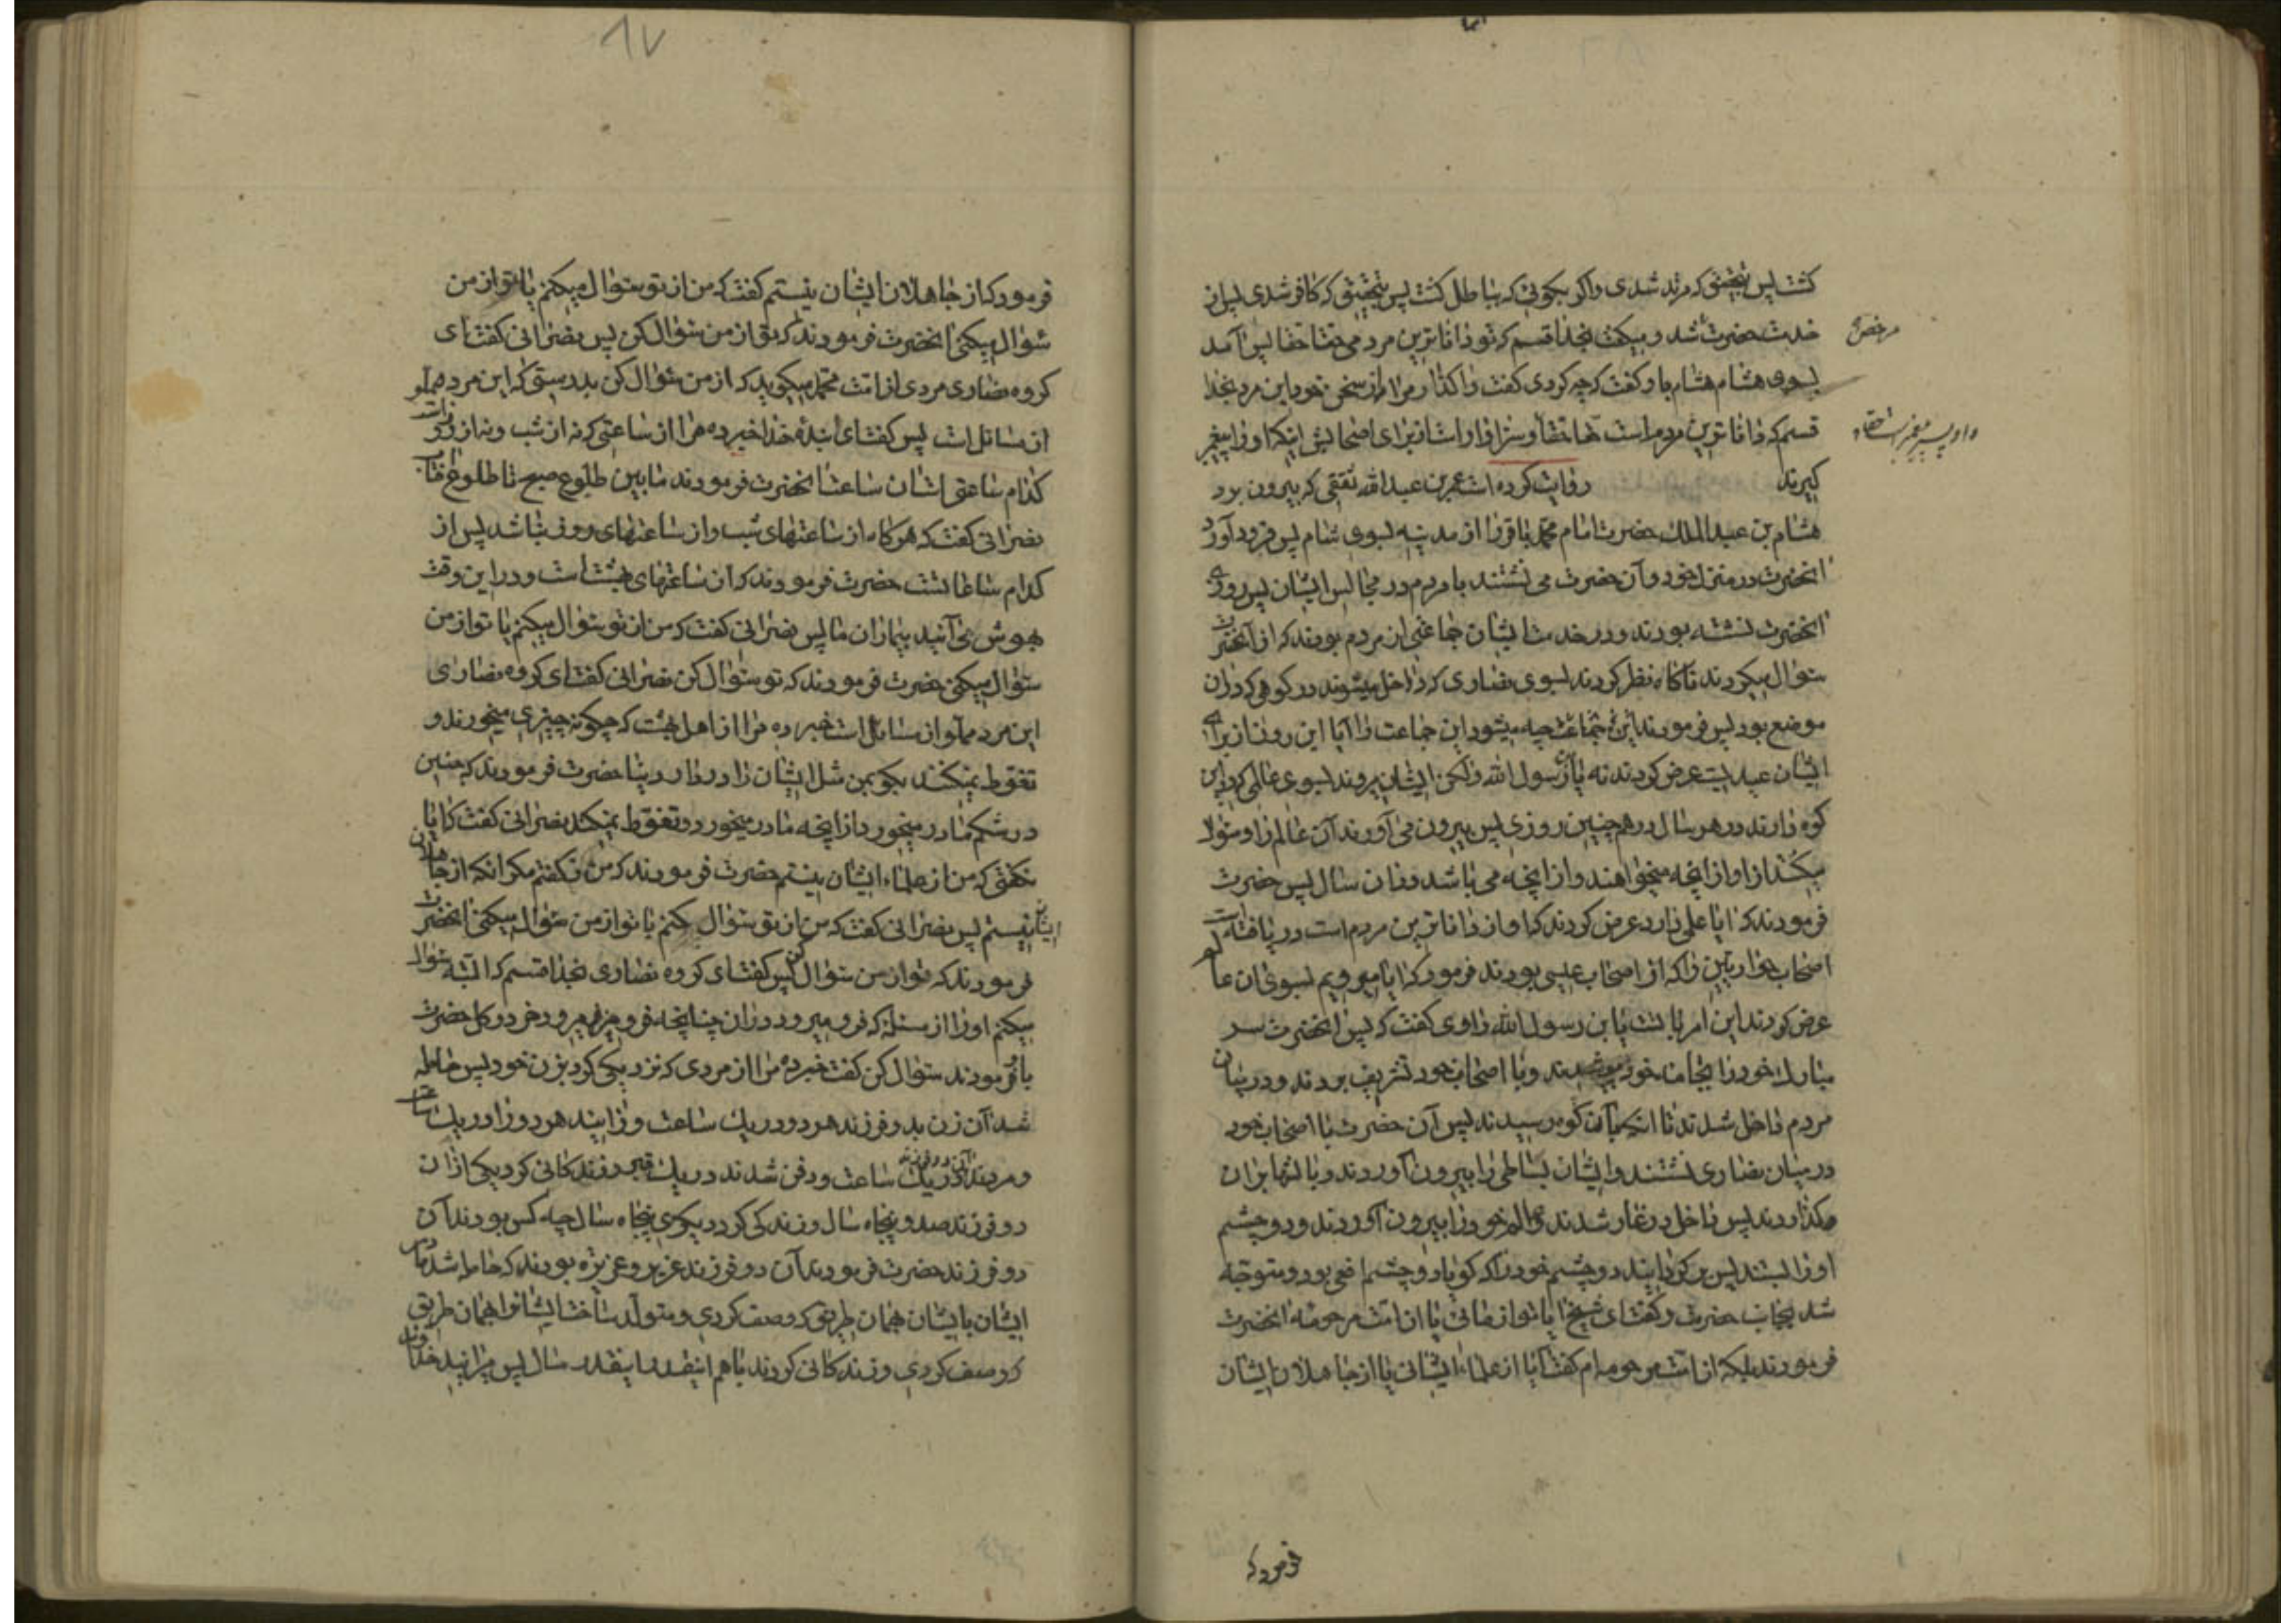 گشت پس بتحقیق که مرتد شدی و اگر بگوئی که باطل گشت پس بتحقیق که کافر شدی پس از
خدمت حضرت شد و میگفت بخدا قسم که تو داناترین مردمی حقا حقا پس آمد
بسوی هشام هشام باو گفت که چه کردی گفت واگذار مرا از سخن خود این مرد بخدا
قسم که داناترین مردم است حقا حقا و سزاوار است از برای اصحابش اینکه او را پیغمبر
گیرند روایت کرده است عمر بن عبدالله ثقفی که بیرون برد
هشام بن عبدالملک حضرت امام محمد باقر را از مدینه بسوی شام پس فرود آورد
آنحضرت در منزل خود و آن حضرت می نشستند با مردم در مجالس ایشان پس روزی
آنحضرت نشسته بودند و در خدمت ایشان جماعتی از مردم بودند که از آنحضرت
سؤال میکردند ناگاه نظر کردند بسوی نصاری که داخل میشوند در کوهی که در آن
موضع بود پس فرمودند این جماعت چه میشود این جماعت را آیا این روز از برای
ایشان عیدیست عرض کردند نه یابن رسول الله ولکن ایشان میروند بسوی عالمی که در این
کوه دارند در هر سال در همچنین روزی پس بیرون می آورند آن عالم را و سؤال
میکنند از او از آنچه میخواهند و از آنچه می باشد در آن سال پس حضرت
فرمودند که آیا علمی دارد عرض کردند که او از داناترین مردم است دریافته است
اصحاب حواریین را که از اصحاب عیسی بودند فرمود که آیا میرویم بسوی آن عالم
عرض کردند این امر با تست یابن رسول الله راوی گفت که پس آنحضرت سر
مبارک خود را بجامه خود پوشیدند و با اصحاب خود تشریف بردند و در میان
مردم داخل شدند تا اینکه بآن کوه رسیدند پس آن حضرت با اصحاب خود
در میان نصاری نشستند و ایشان بساطی را بیرون آوردند و بالشها بر آن
گذاردند پس داخل در غار شدند و عالم خود را بیرون آوردند و دو چشم
او را بستند پس برگردانید دو چشم خود را که گویا دو چشم افعی بود و متوجه
شد بجانب حضرت و گفت ای شیخ آیا تو از مائی یا از امت مرحومه آنحضرت
فرمودند بلکه از امت مرحومه ام گفت آیا از علماء ایشانی یا از جاهلان ایشان
فرمود که
۸۷
فرمود که از جاهلان ایشان نیستم گفت که من از تو سؤال میکنم یا تو از من
سؤال میکنی آنحضرت فرمودند که تو از من سؤال کن پس نصرانی گفت ای
گروه نصاری مردی از امت محمد میگوید که از من سؤال کن بدرستی که این مرد مملو
از مسائل است پس گفت ای بنده خدا خبر ده مرا از ساعتی که نه از شب و نه از روز است
کدام ساعتی است آن ساعت آنحضرت فرمودند مابین طلوع صبح تا طلوع آفتاب
نصرانی گفت که هرگاه از ساعتهای شب و از ساعتهای روز نباشد پس از
کدام ساعاتست حضرت فرمودند که آن ساعتهای بهشت است و در این وقت
بهوش می آیند بیماران ما پس نصرانی گفت که من از تو سؤال میکنم یا تو از من
سؤال میکنی حضرت فرمودند که تو سؤال کن نصرانی گفت ای گروه نصاری
این مرد مملو از مسائل است خبر ده مرا از اهل بهشت که چگونه چیزی میخورند و
تغوط نمیکنند بگو بمن مثل ایشان را در دار دنیا حضرت فرمودند که جنین
در شکم مادر میخورد از آنچه مادر میخورد و تغوط نمیکند نصرانی گفت که آیا
نگفتی که من از علماء ایشان نیستم حضرت فرمودند که من نگفتم مگر آنکه از جاهلان
ایشان نیستم پس نصرانی گفت که من از تو سؤال کنم یا تو از من سؤال میکنی آنحضرت
فرمودند که تو از من سؤال کن پس گفت ای گروه نصاری بخدا قسم که البته سؤال
میکنم او را از مسئله که فرو میرود در آن چنانچه فرو میرود خر در گل حضرت
باو فرمودند سؤال کن گفت خبر ده مرا از مردی که نزدیکی کرد بزن خود پس حامله
شد آن زن بدو فرزند هر دو در یک ساعت و زائید هر دو را در یک ساعت
و مردند آن دو فرزند در یک ساعت و دفن شدند در یک قبر و زندگانی کرد یکی از آن
دو فرزند صد و پنجاه سال و زندگی کرد دیگری پنجاه سال چه کس بودند آن
دو فرزند حضرت فرمودند آن دو فرزند عزیر و عزیزه بودند که حامله شد مادر
ایشان بایشان بهمان طریق که وصف کردی و متولد ساخت ایشانرا بهمان طریق
که وصف کردی و زندگانی کردند باهم اینقدر اینقدر سال پس میرانید خداوند